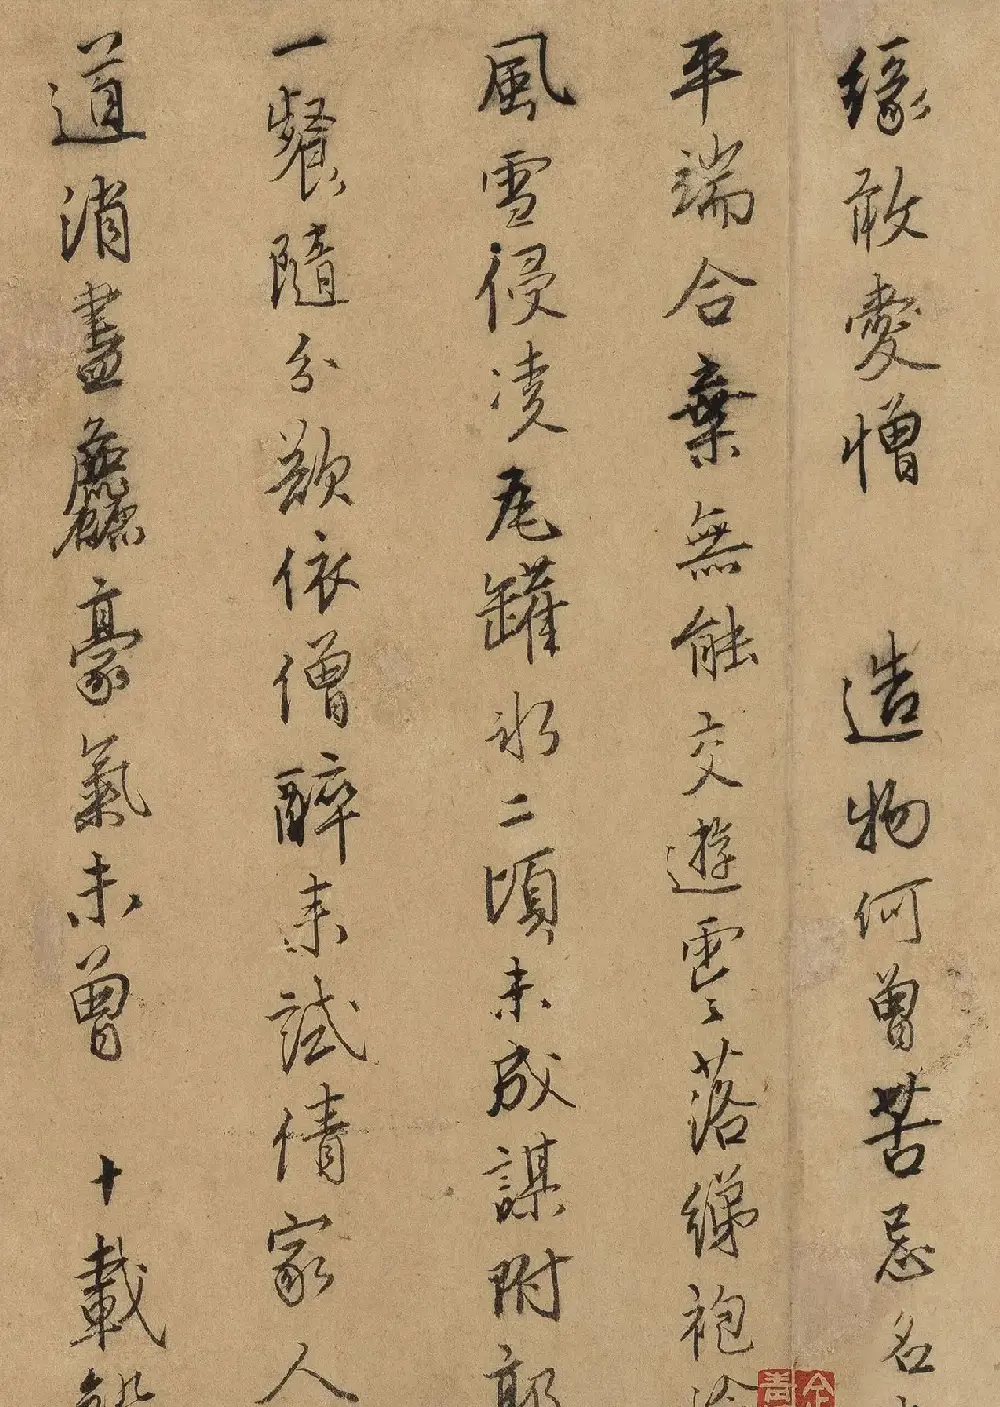 緣敢愛憎 造物何曾苦忌名
平端合棄無能交遊雲〻落綈袍
風雪侵凌瓦罐冰二頃未成謀附郭
一餐隨分欲依僧醉來試倩家人
道消盡麤豪氣未曾 十載